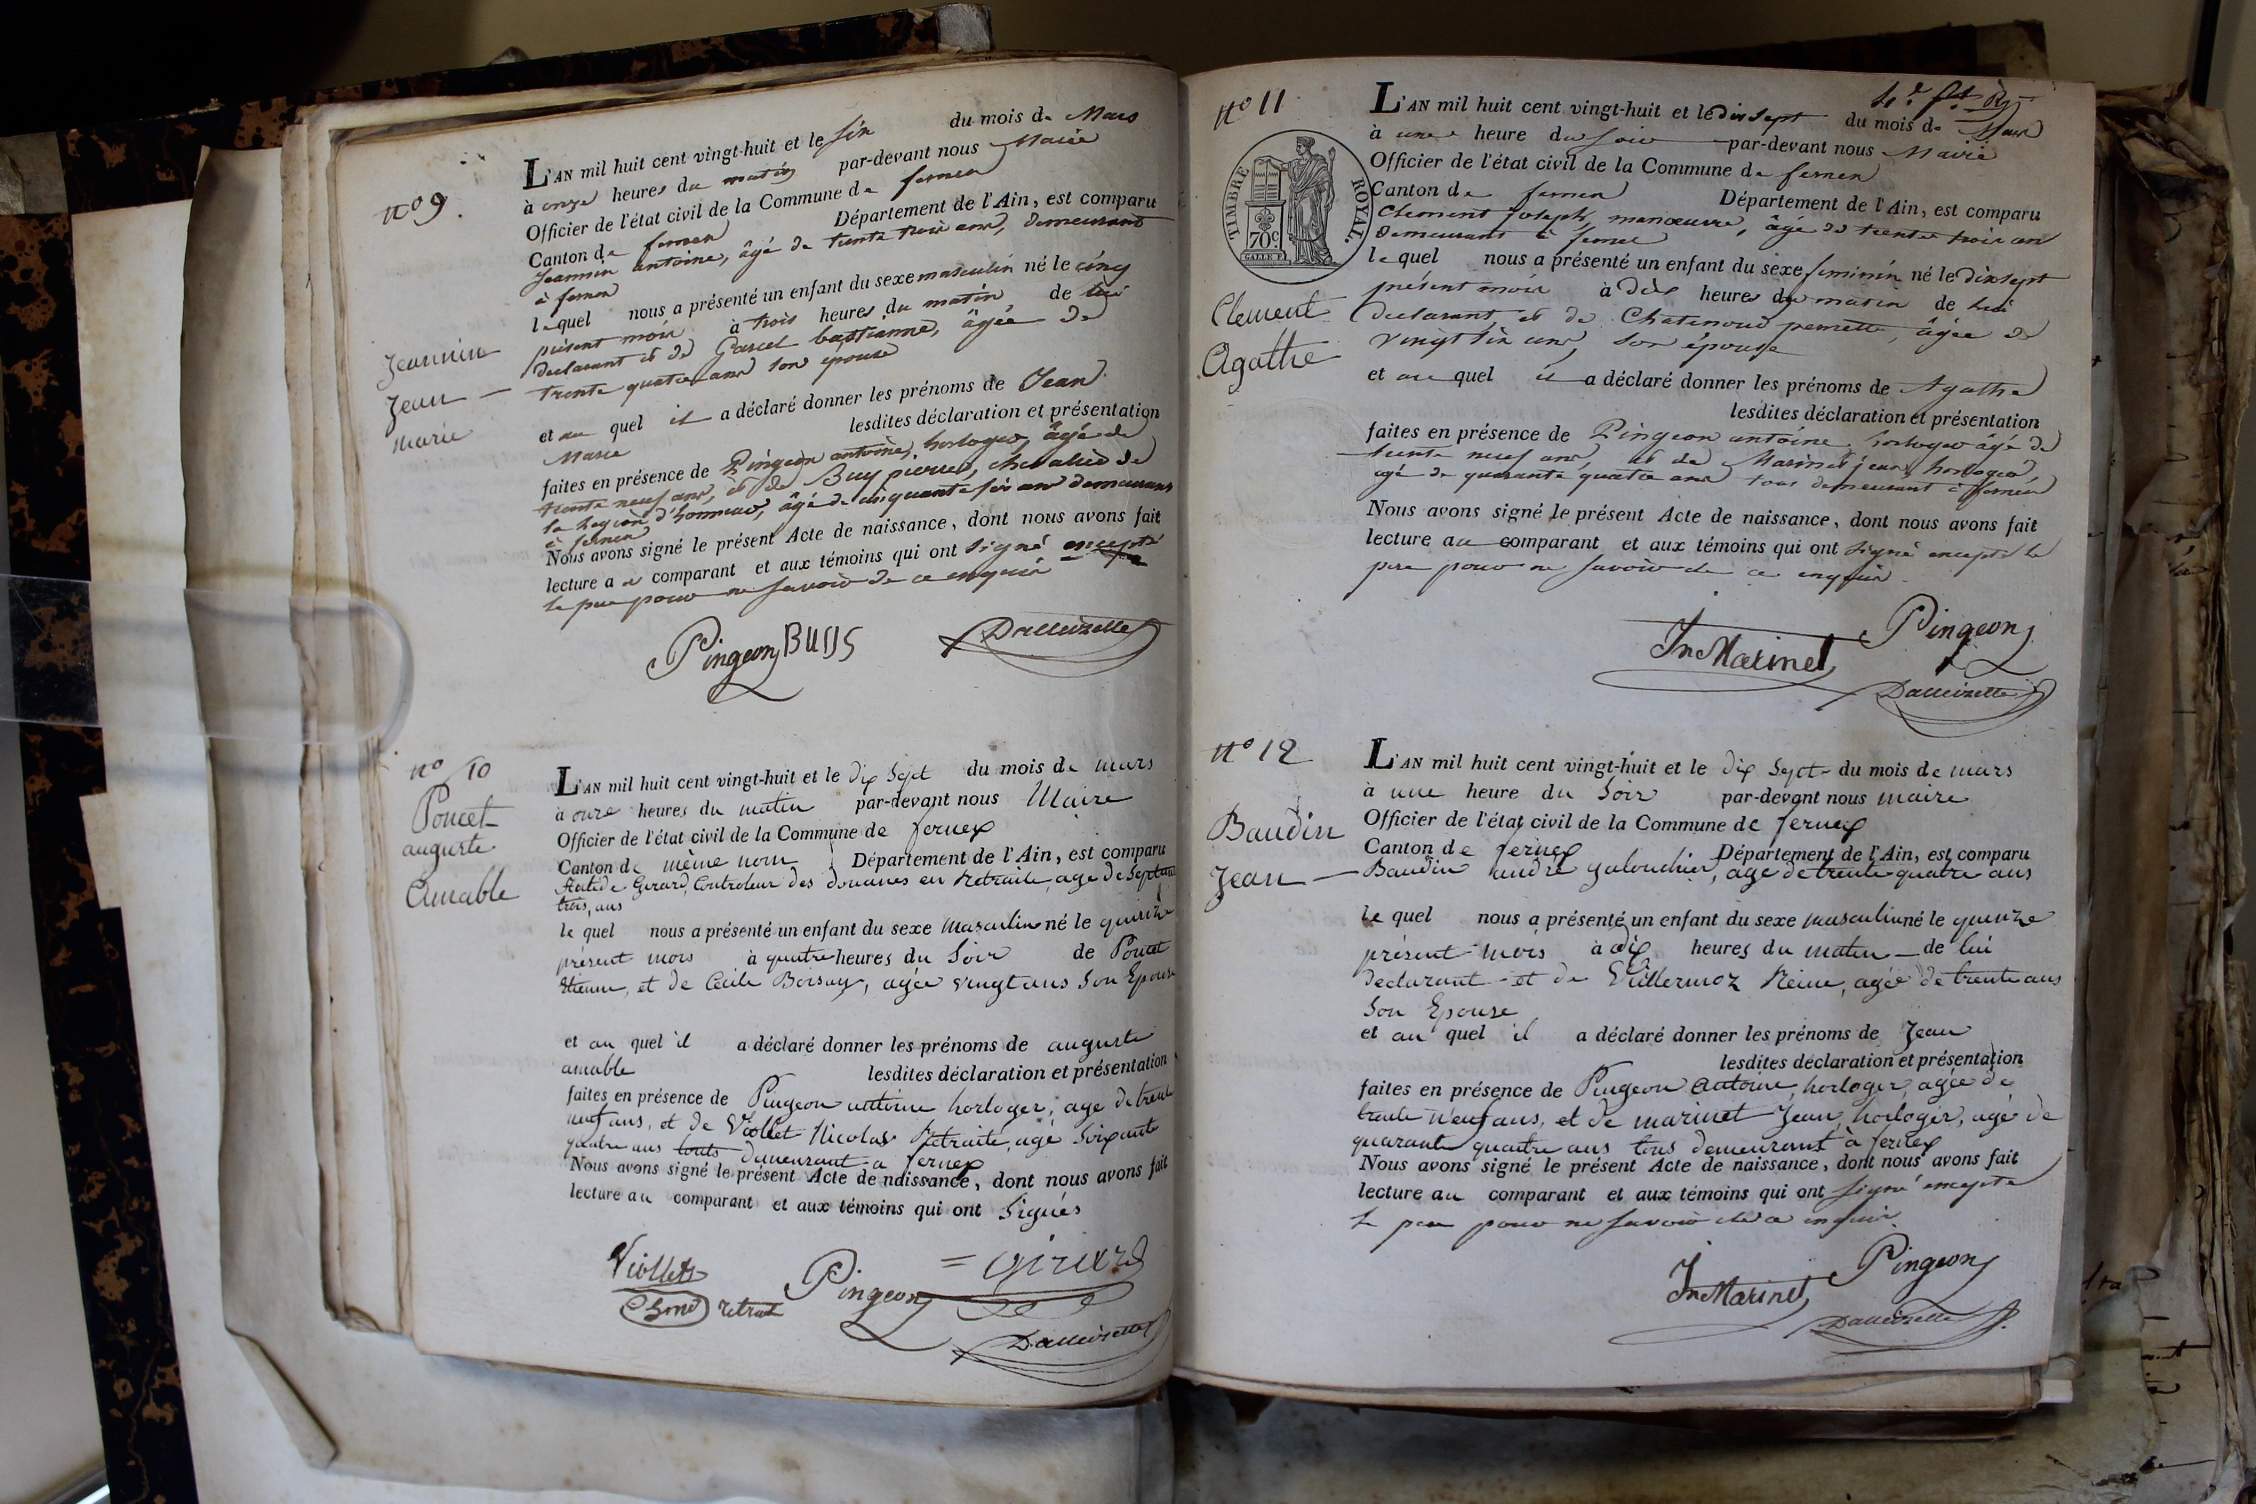 n° 9.
L'AN mil huit cent vingt-huit et le six du mois de Mars
à onze heures du matin par-devant nous Maire
Officier de l'état civil de la Commune de fernex
Canton de fernex Département de l'Ain, est comparu
Jeannin antoine, âgé de trente trois ans, demeurant
à fernex
lequel nous a présenté un enfant du sexe masculin né le cinq
présent mois à trois heures du matin de lui
declarant et de bastienne, âgée de
trente quatre ans son épouse
Jeannin
Jean
marie
et au quel il a déclaré donner les prénoms de Jean
Marie lesdites déclaration et présentation
faites en présence de Pingeon antoine, horloger, âgé de
trente neuf ans, et de Buy pierre, chevalier de
la Legion d'honneur, âgé de cinquante six ans demeurant
à fernex
Nous avons signé le présent Acte de naissance, dont nous avons fait
lecture au comparant et aux témoins qui ont signé excepté
le pere pour ne savoir de ce enquir
Pingeon BUIJS Dalleizette
n° 10
Poncet
auguste
Amable
L'AN mil huit cent vingt-huit et le dix Sept du mois de mars
à onze heures du matin par-devant nous Maire
Officier de l'état civil de la Commune de fernex
Canton de même nom Département de l'Ain, est comparu
Girard, Controleur des douanes en Retraite, age de Septante
trois, ans
le quel nous a présenté un enfant du sexe masculin né le quinze
présent mois à quatre heures du Soir de Poncet
Etienne, et de Cécile, agée vingt ans Son Epouse
et au quel il a déclaré donner les prénoms de auguste
amable lesdites déclaration et présentation
faites en présence de Pingeon antoine horloger, age de trente
neuf ans, et de Viollet Nicolas Retraité, agé Soixante
quatre ans touts demeurant a fernex
Nous avons signé le présent Acte de naissance, dont nous avons fait
lecture au comparant et aux témoins qui ont Signés
Viollet Pingeon = Girard
retrait
Dalleizette
n° 11
TIMBRE ROYAL.
70c
L'AN mil huit cent vingt-huit et le dix sept du mois de Mars
à une heure du soir par-devant nous Maire
Officier de l'état civil de la Commune de fernex
Canton de fernex Département de l'Ain, est comparu
Clement Joseph, manœuvre, âgé de trente trois ans
demeurant à fernex
le quel nous a présenté un enfant du sexe feminin né le dix sept
présent mois à dix heures du matin de lui
declarant et de Chatenoud pernette, âgée de
vingt six ans, son épouse
Clement
Agathe
et au quel il a déclaré donner les prénoms de Agathe
lesdites déclaration et présentation
faites en présence de Pingeon antoine, horloger âgé de
trente neuf ans, et de Marinet jean, horloger,
agé de quarante quatre ans tous demeurant à fernex
Nous avons signé le présent Acte de naissance, dont nous avons fait
lecture au comparant et aux témoins qui ont signé excepté le
pere pour ne savoir de ce enquir
Jn Marinet Pingeon
Dalleizette
n° 12
Baudin
Jean
L'AN mil huit cent vingt-huit et le dix Sept du mois de mars
à une heure du Soir par-devant nous maire
Officier de l'état civil de la Commune de fernex
Canton de fernex Département de l'Ain, est comparu
Baudin andré galouchier, age de trente quatre ans
le quel nous a présenté un enfant du sexe masculin né le quinze
présent mois à dix heures du matin de lui
declarant et de Vuillermoz Reine, agée de trente ans
Son Epouse
et au quel il a déclaré donner les prénoms de Jean
lesdites déclaration et présentation
faites en présence de Pingeon Antoine, horloger, agée de
trente neuf ans, et de marinet Jean, horloger, agé de
quarante quatre ans tous demeurant à fernex
Nous avons signé le présent Acte de naissance, dont nous avons fait
lecture au comparant et aux témoins qui ont signé excepté
le pere pour ne savoir de ce enquir
Jn Marinet Pingeon
Dalleizette